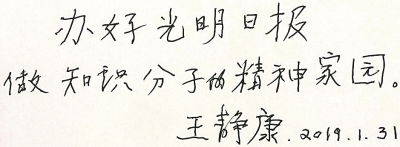 办好光明日报
做知识分子的精神家园。
王静康.2019.1.31